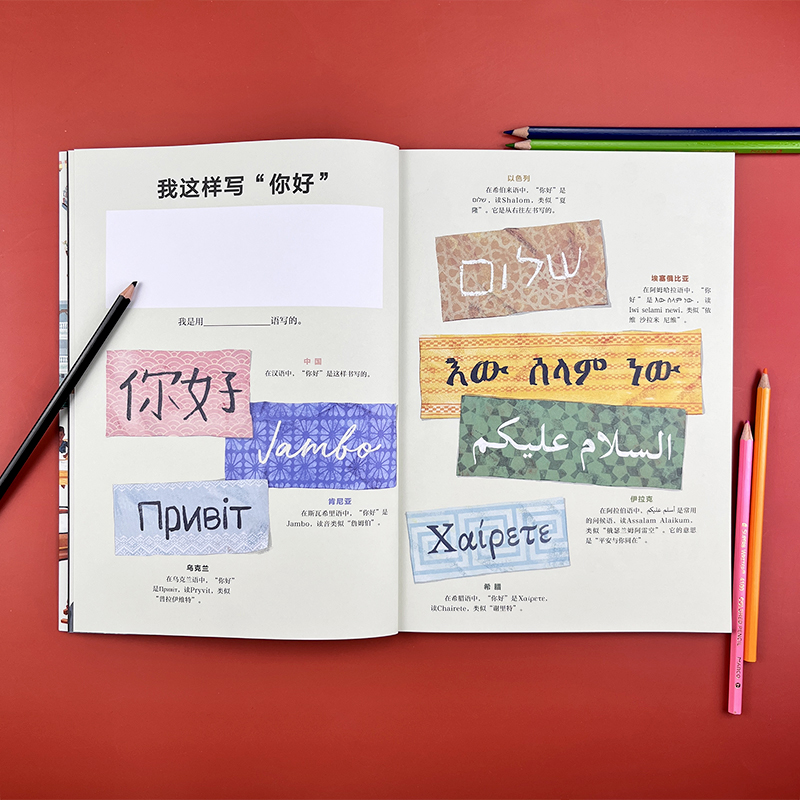 我这样写“你好”
我是用____________语写的。
中国
在汉语中，“你好”是这样书写的。
你好
Jambo
肯尼亚
在斯瓦希里语中，“你好”是
Jambo，读音类似“詹姆伯”。
Привіт
乌克兰
在乌克兰语中，“你好”
是Привіт，读Pryvit，类似
“普拉伊维特”。
以色列
在希伯来语中，“你好”是
שלום，读Shalom，类似“夏
隆”。它是从右往左书写的。
שלום
埃塞俄比亚
在阿姆哈拉语中，“你
好”是እው ሰላም ነው，读
Iwi selami newi，类似“依
维 沙拉米 尼维”。
እው ሰላም ነው
السلام عليكم
伊拉克
在阿拉伯语中，أسلم عليكم是常用
的问候语，读Assalam Alaikum，
类似“俄瑟兰姆阿雷空”。它的意思
是“平安与你同在”。
Χαίρετε
希腊
在希腊语中，“你好”是Χαίρετε，
读Chairete，类似“谢里特”。
MARCO